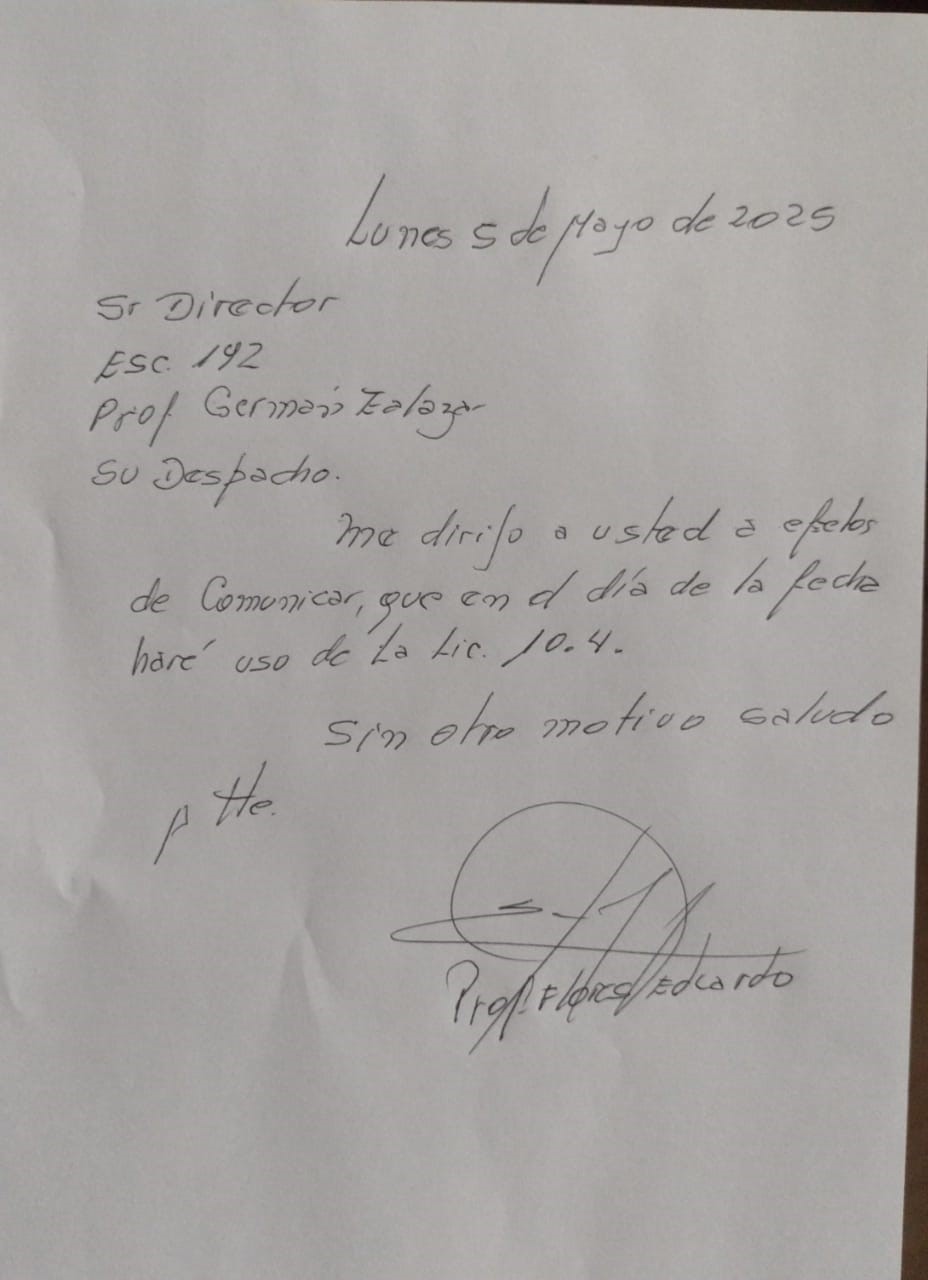 Lunes 5 de Mayo de 2025
Sr Director
Esc. 192
Prof. Germán Zalazar
Su Despacho.
Me dirijo a usted a efetos
de Comunicar, que en el día de la fecha
haré uso de La Lic. 10.4.
Sin otro motivo saludo
Atte.
Prof. Flores Eduardo